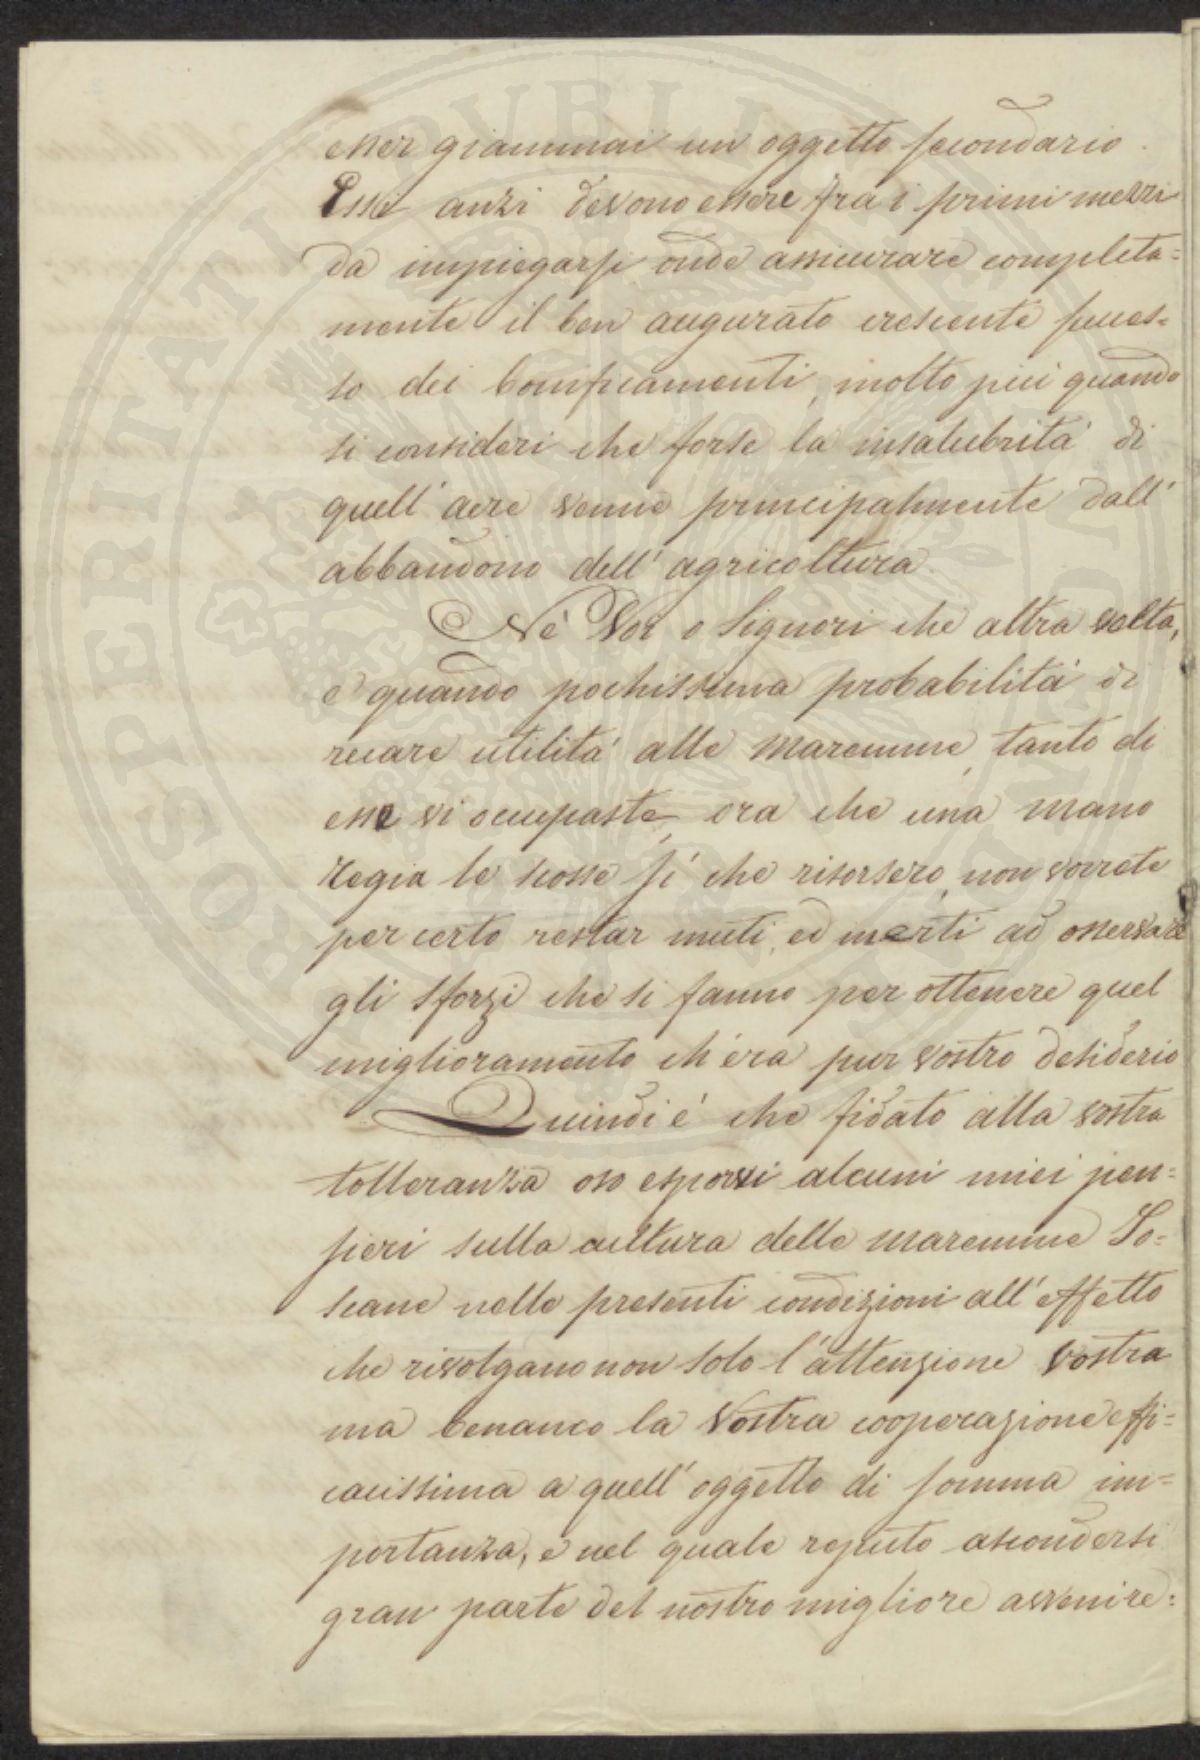 esser giammai un oggetto secondario.
Essi anzi devono essere fra i primi mezzi
da impiegarsi onde assicurare completa=
mente il ben augurato crescente succes=
so dei bonificamenti, molto più quando
si consideri che forse la insalubrità di
quell' aere venne principalmente dall'
abbandono dell' agricoltura.
Nè Voi o Signori che altra volta,
e quando pochissima probabilità di
recare utilità alle maremme, tanto di
esse vi occupaste, ora che una mano
regia le scosse sì che risorsero, non vorrete
per certo restar muti, ed inerti ad osservare
gli sforzi che si fanno per ottenere quel
miglioramento ch'era pur vostro desiderio
Quindi è che fidato alla vostra
tolleranza oso esporvi alcuni miei pen=
sieri sulla cultura delle maremme To=
scane nelle presenti condizioni all' effetto
che risolgano non solo l'attenzione vostra
ma benanco la vostra cooperazione effi=
cacissima a quell' oggetto di somma im=
portanza, e nel quale reputo ascondersi
gran parte del nostro migliore avvenire:
PROSPERITATI PUBLICAE